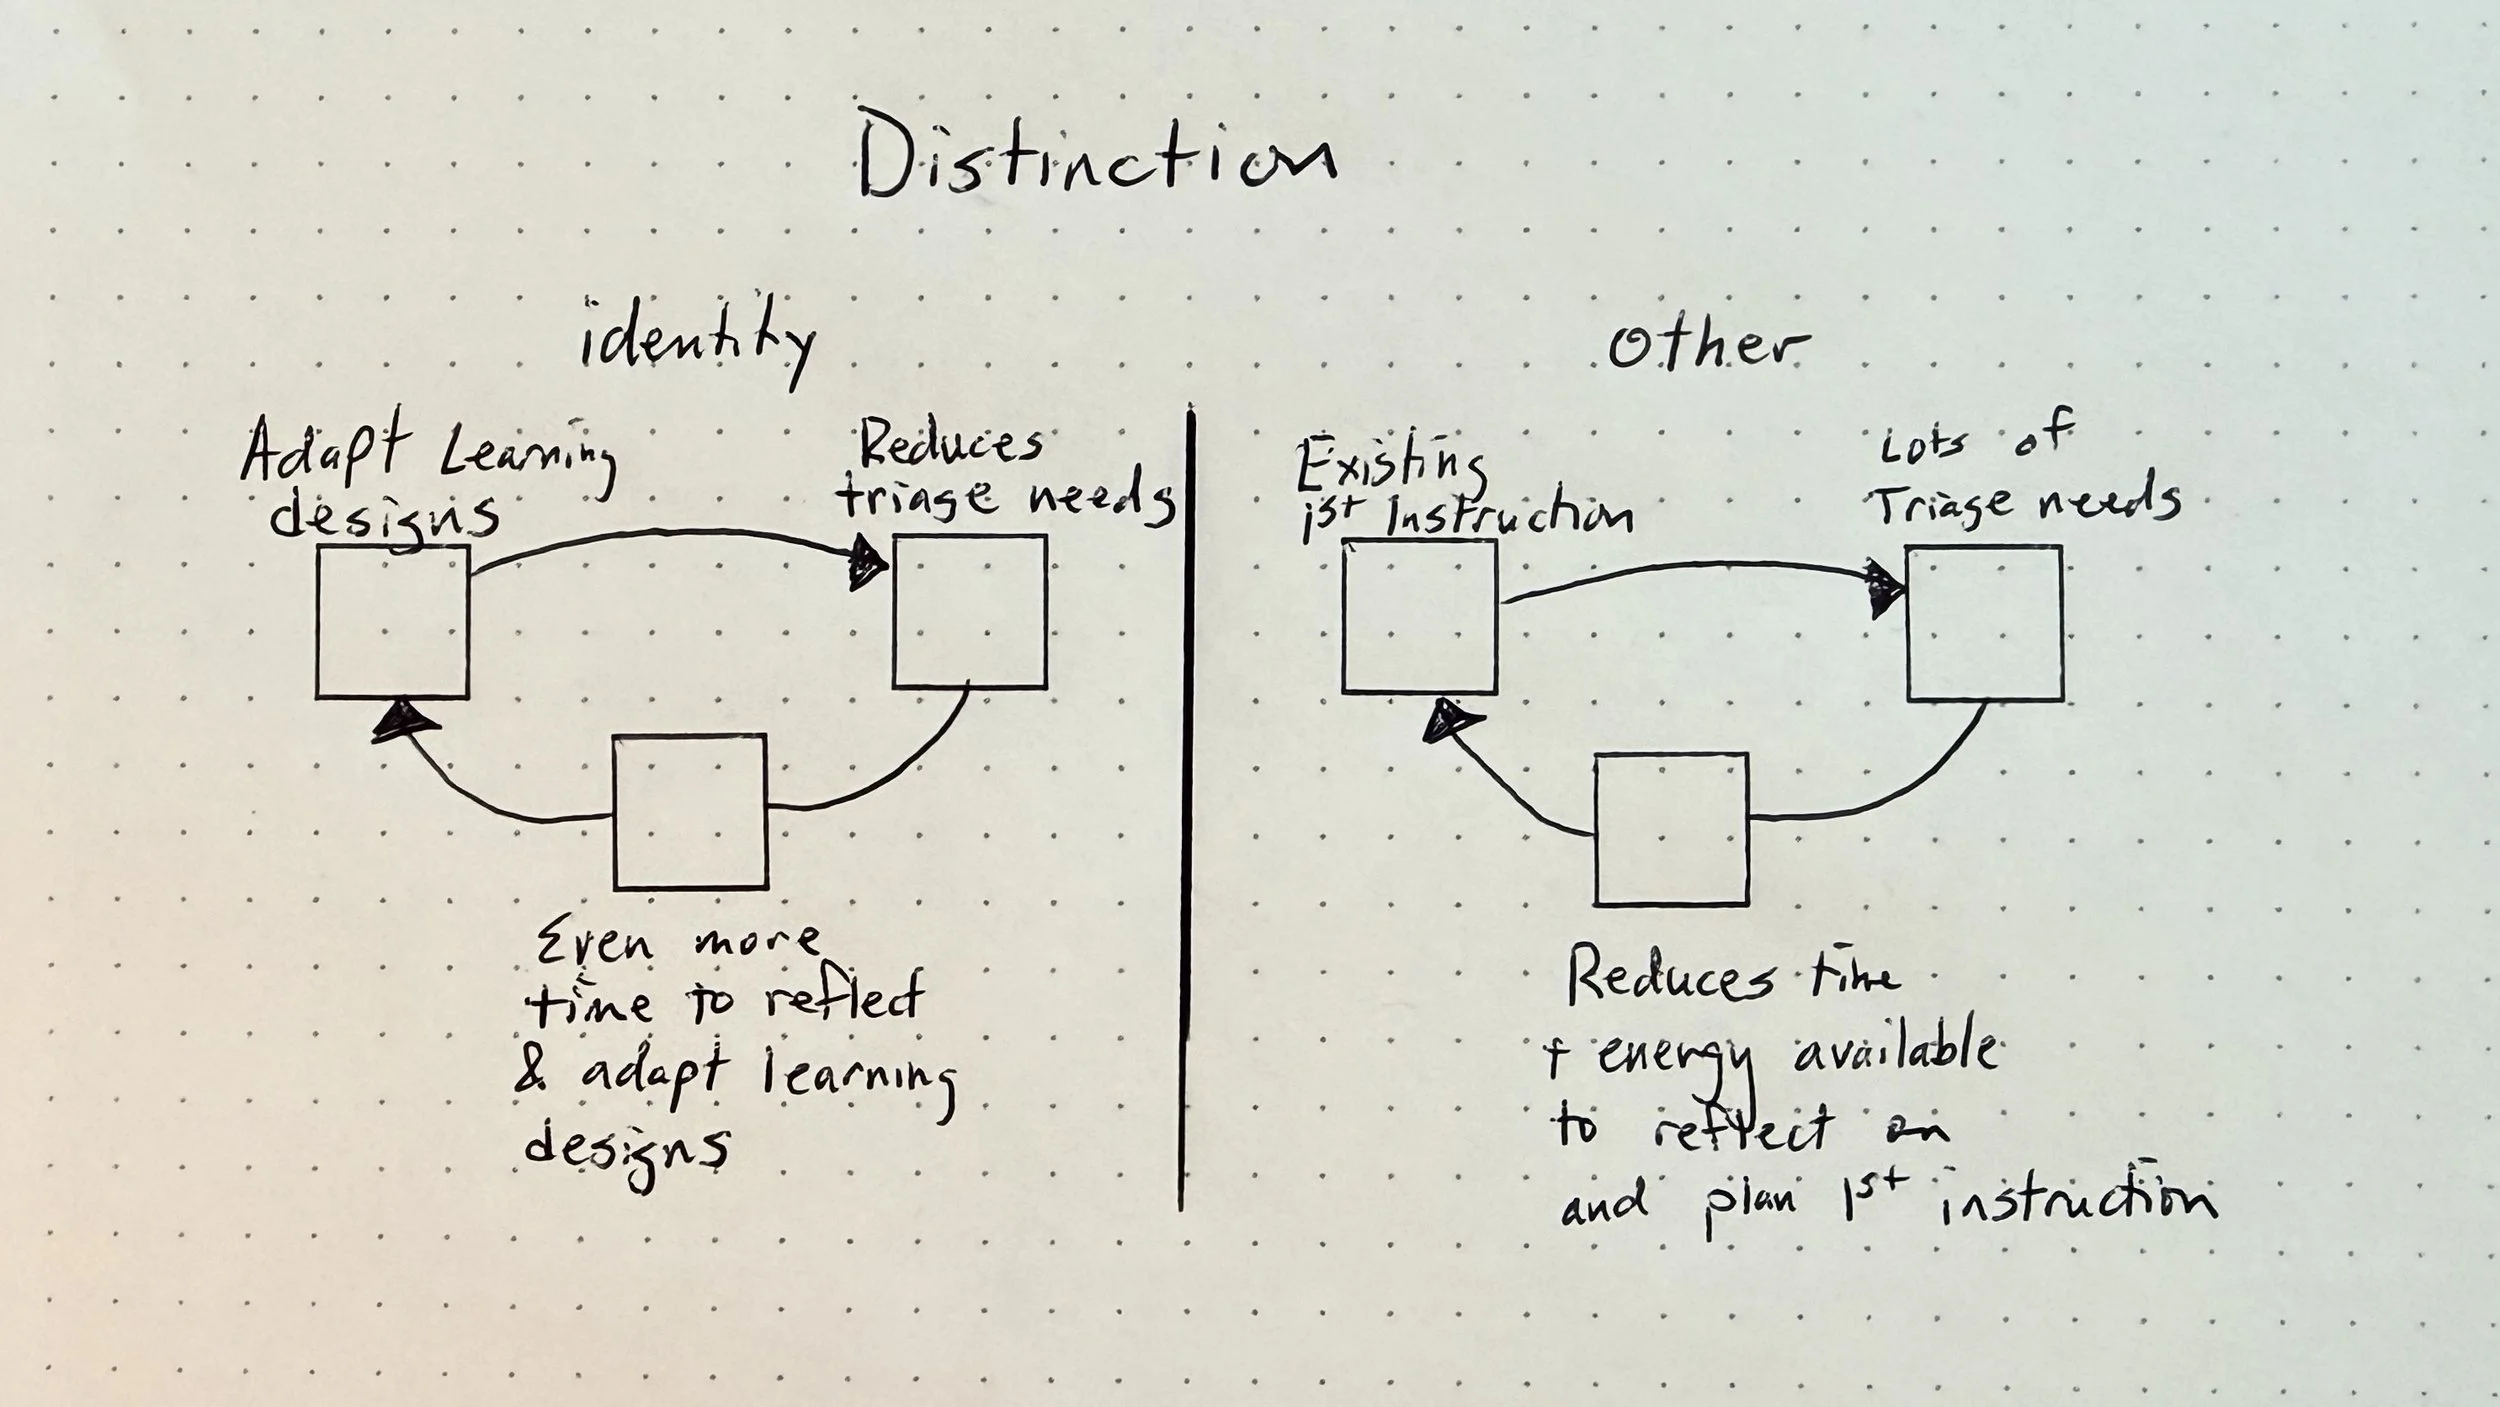 Distinction
identity
Adapt Learning
designs
Reduces
triage needs
Even more
time to reflect
& adapt learning
designs
other
Existing
1st Instruction
Lots of
Triage needs
Reduces time
+ energy available
to reflect on
and plan 1st instruction